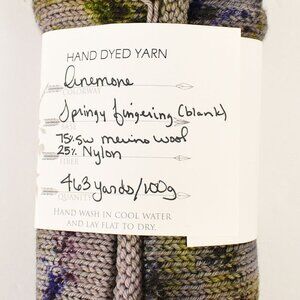 HAND DYED YARN
Anemone
COLORWAY
Springy fingering (blank)
75% SW merino wool
25% Nylon
FIBER
463 yards/100g
QUANTITY
HAND WASH IN COOL WATER
AND LAY FLAT TO DRY.